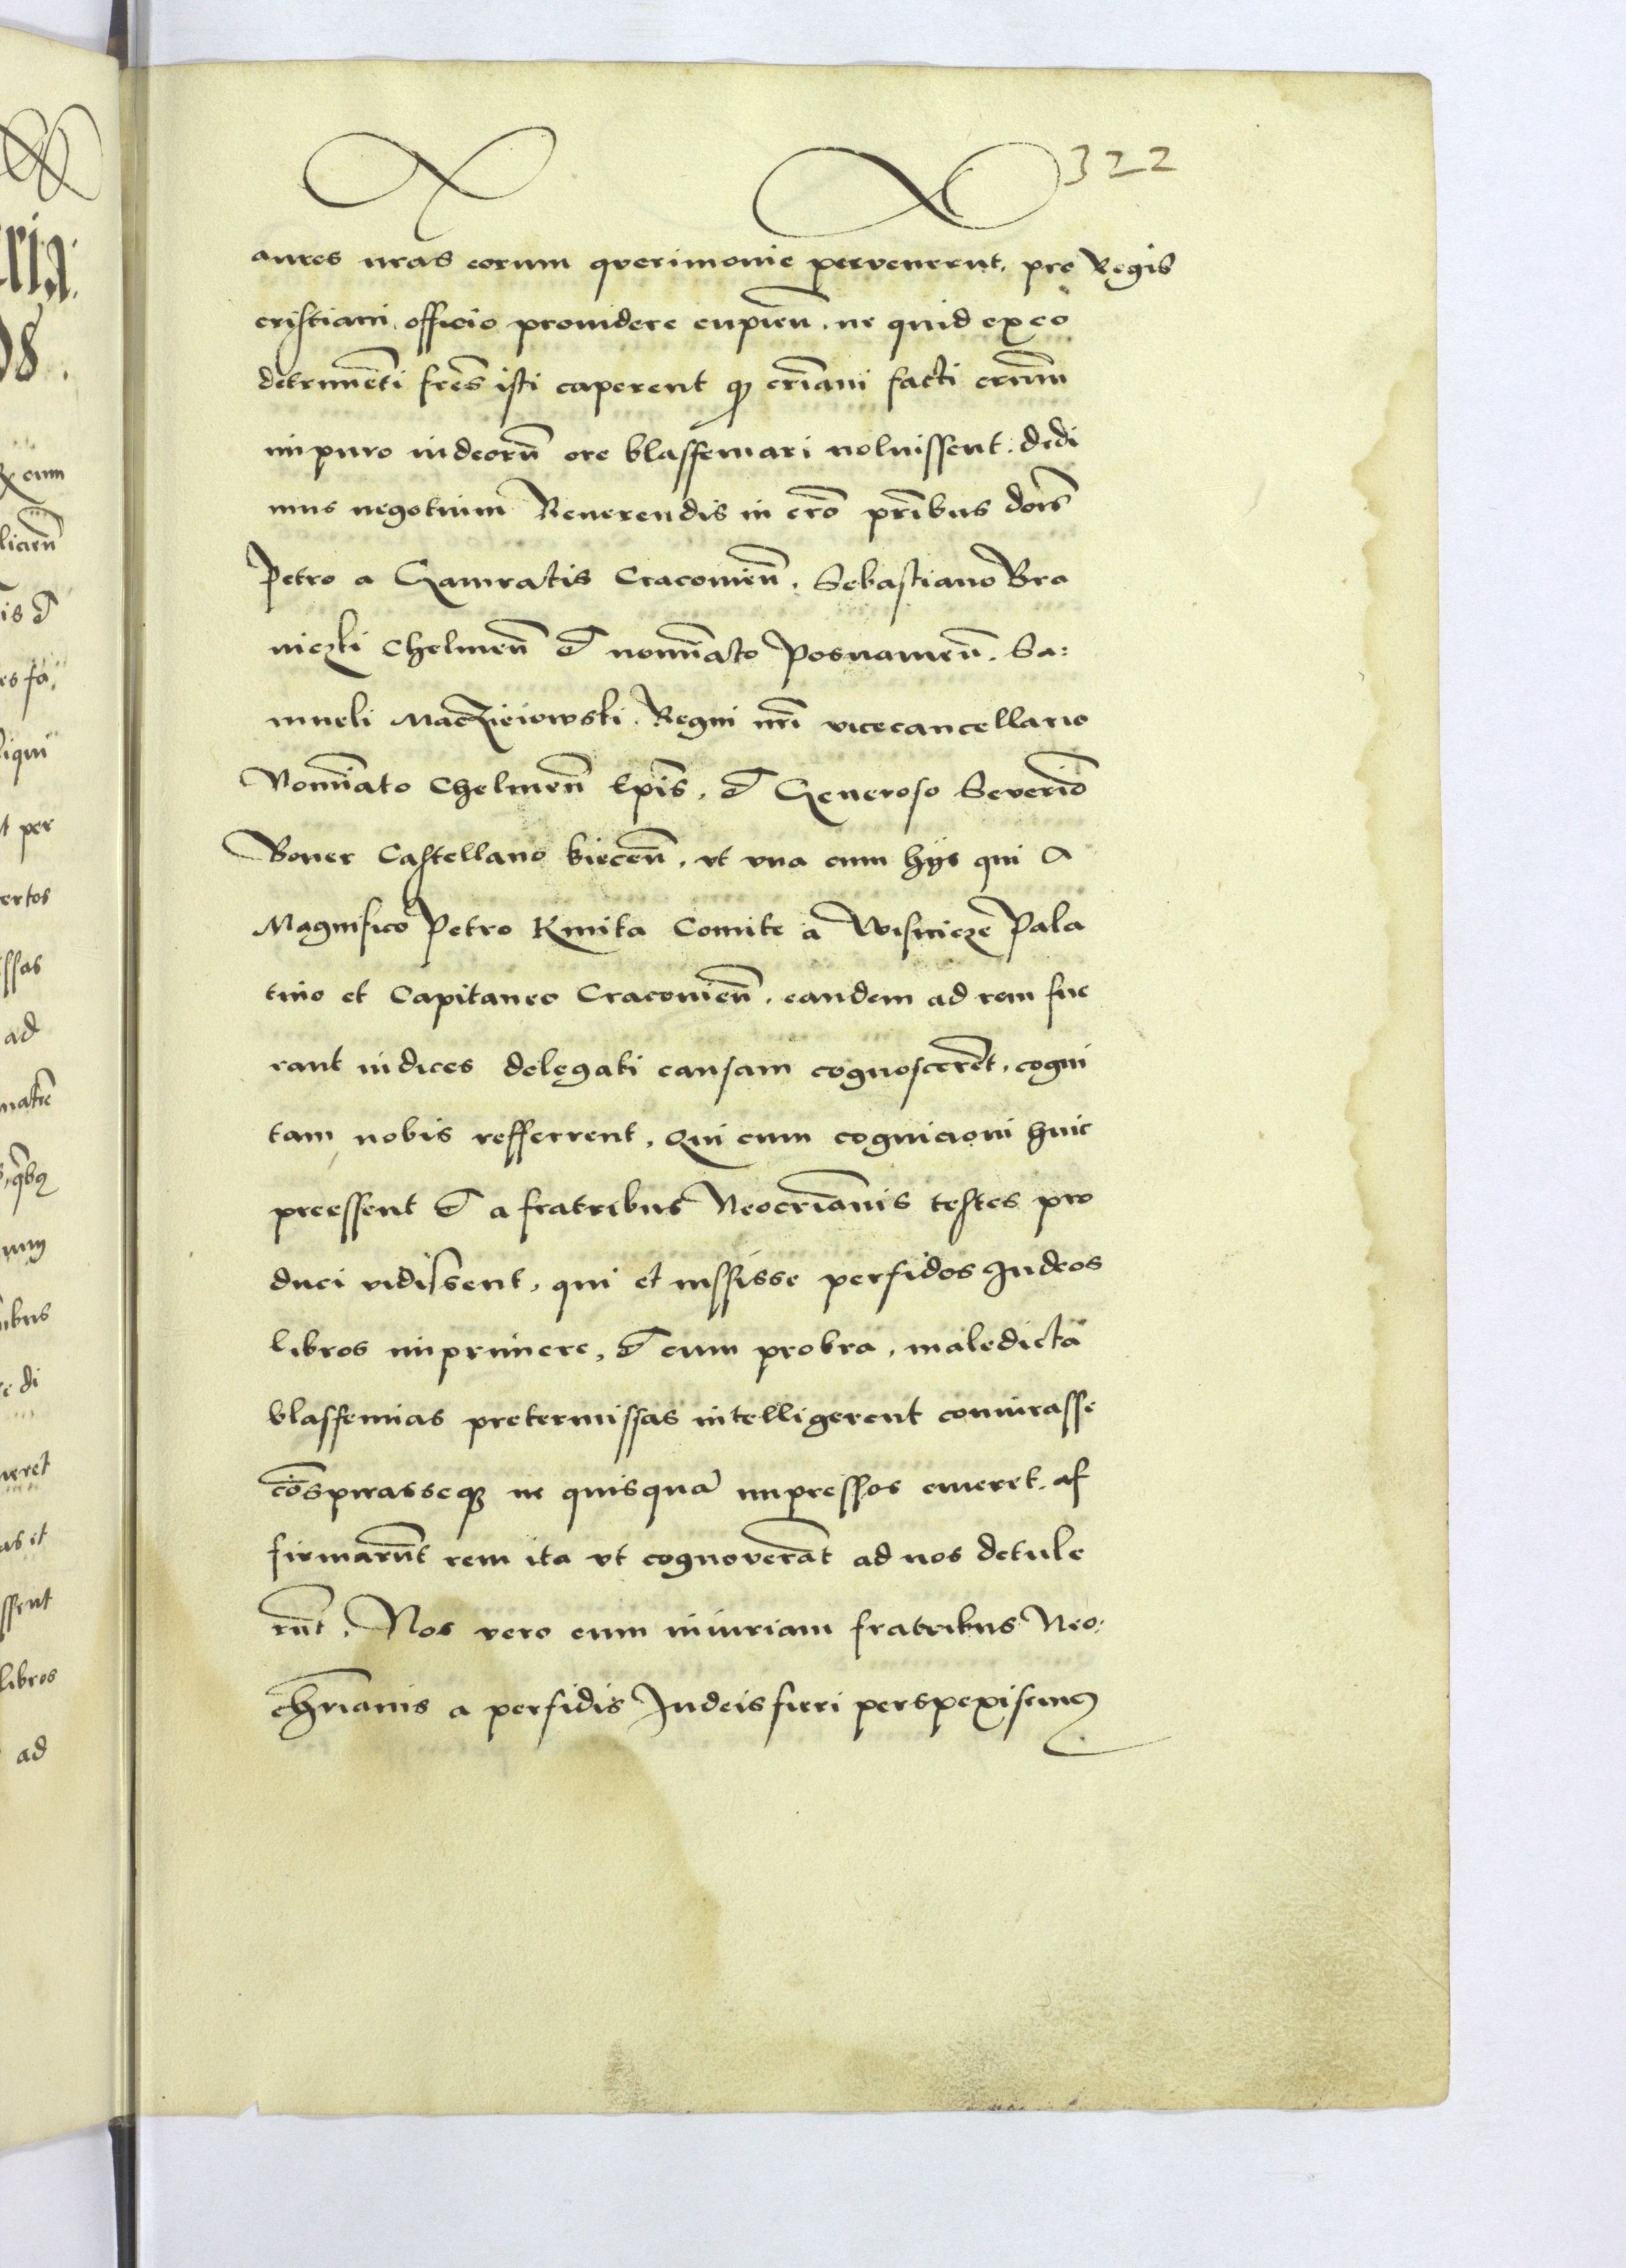 322
aures nras eorum querimonie pervenerunt, pro Regis
cristiani, officio providere cupien. ne quid ex eo
detrimēti frēs isti caperent qͣ criani facti crūm
impuro iudeorū ore blasfemari noluissent. dedi
mus negotium Reverendis in cro pribus dnis
Petro a Gamratis Cracovien. Sebastiano Bra
niczki Chelmen et nominato Posnanien. Sa:
mueli Maczieiowski. Regni nri vicecancellario
Nominato Chelmen Epis. et Generoso Severino
Boner Castellano biecen. vt vna cum hijs qui A
Magnifico Petro Kmita Comite a Wisnicze Pala
tino et Capitaneo Cracovien. eandem ad rem fue
rant iudices delegati causam cognoscerēt. cogni
tam nobis refferrent. Qui cum cognicioni huic
preessent et a fratribus Neocrianis testes pro
duci vidissent, qui et iussisse perfidos Iudeos
libros imprimere, et cum probra, maledicta
blasfemias pretermissas intelligerent coniurasse
cōspirasseqꝫ ne quisquā impressos emeret. af
firmarūt rem ita vt cognoverāt ad nos detule
rūt. Nos vero cum iniuriam fratribus Neo:
chrianis a perfidis Iudeis fieri perspexissemꝰ